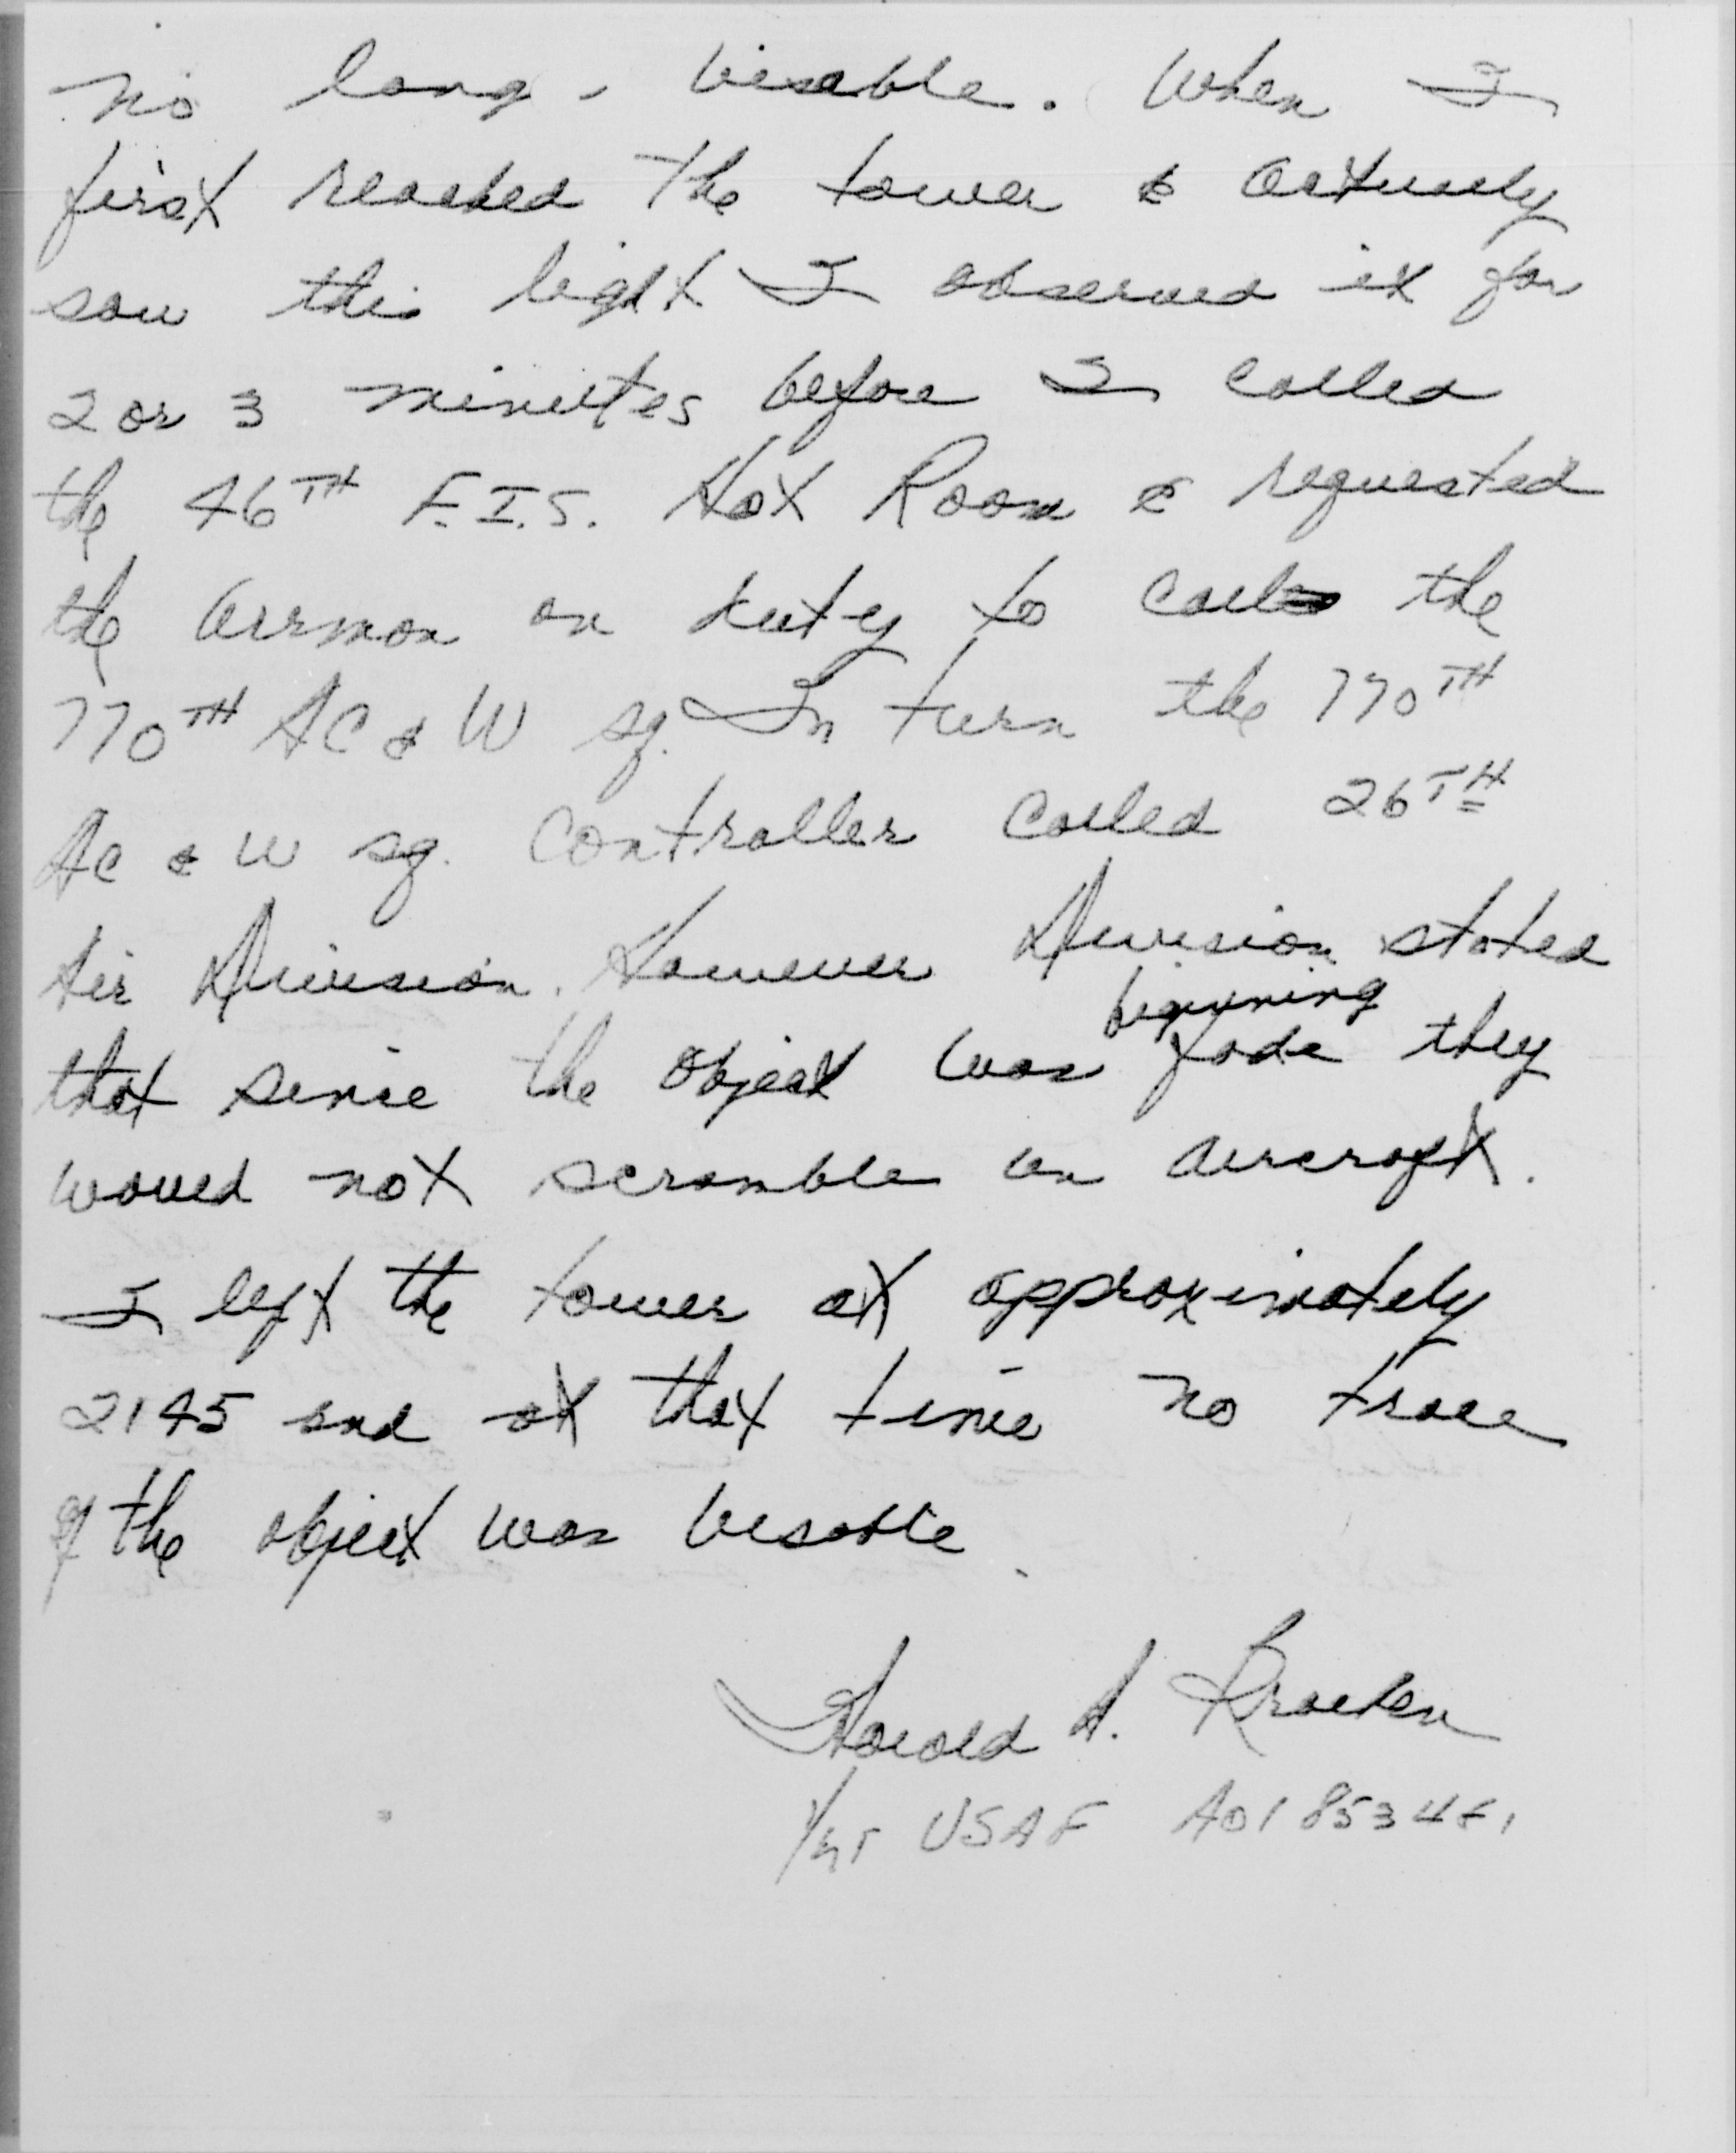 no long. visable. When I
first reached the tower & actually
saw this light I observed it for
2 or 3 minutes before I called
the 46TH F.I.S. Hot Room & requested
the airman on duty to call the
770TH AC & W sq. In turn the 770TH
AC & W sq. Controller called 26TH
Air Division. However Division stated
beginning
that since the object was fade they
would not scramble an aircraft.
I left the tower at approximately
2145 and at that time no trace
of the object was visable.
Harold A.
1/LT USAF